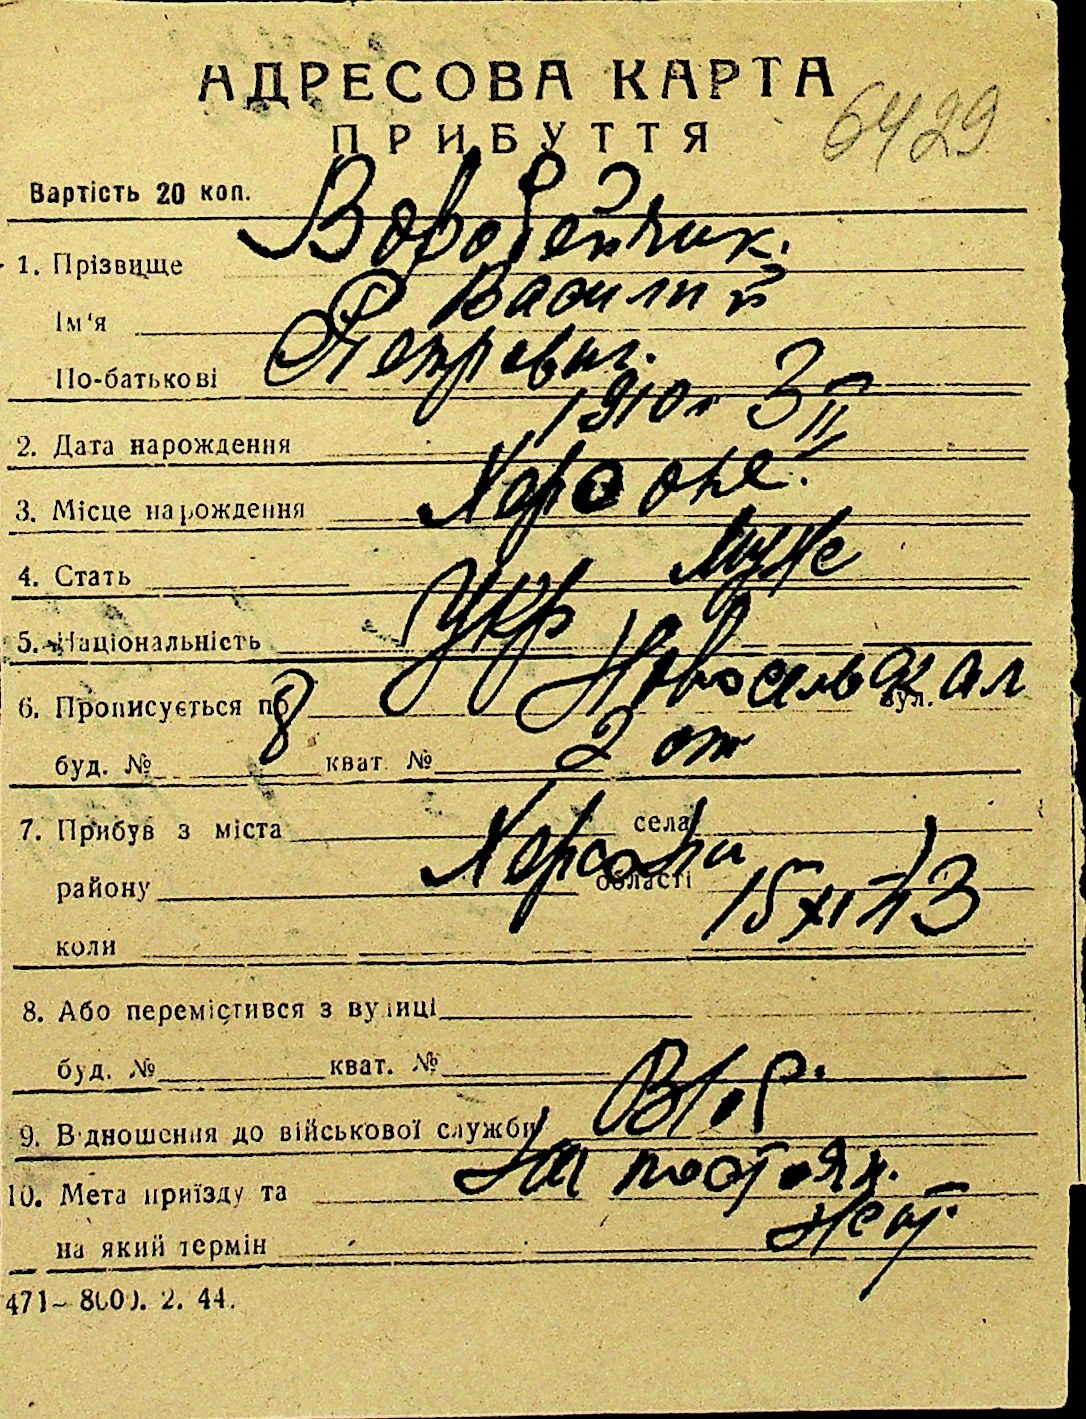 АДРЕСОВА КАРТА
ПРИБУТТЯ
6429
Вартість 20 коп.
1. Прізвище Воробейчик.
Ім'я Василий
По-батькові Петрович.
2. Дата нарождення 1910 г 3/II
3. Місце нарождення Херсоне.
4. Стать муж
5. Національність Укр
6. Прописується по Новосельская вул.
буд. № 8 кват. № 2 от
7. Прибув з міста Херсона села
району області
коли 15 XII 43
8. Або перемістився з вулиці
буд. № кват. №
9. Відношення до військової служби
10. Мета приїзду та На постоян.
на який термін жит.
471–8(00). 2. 44.